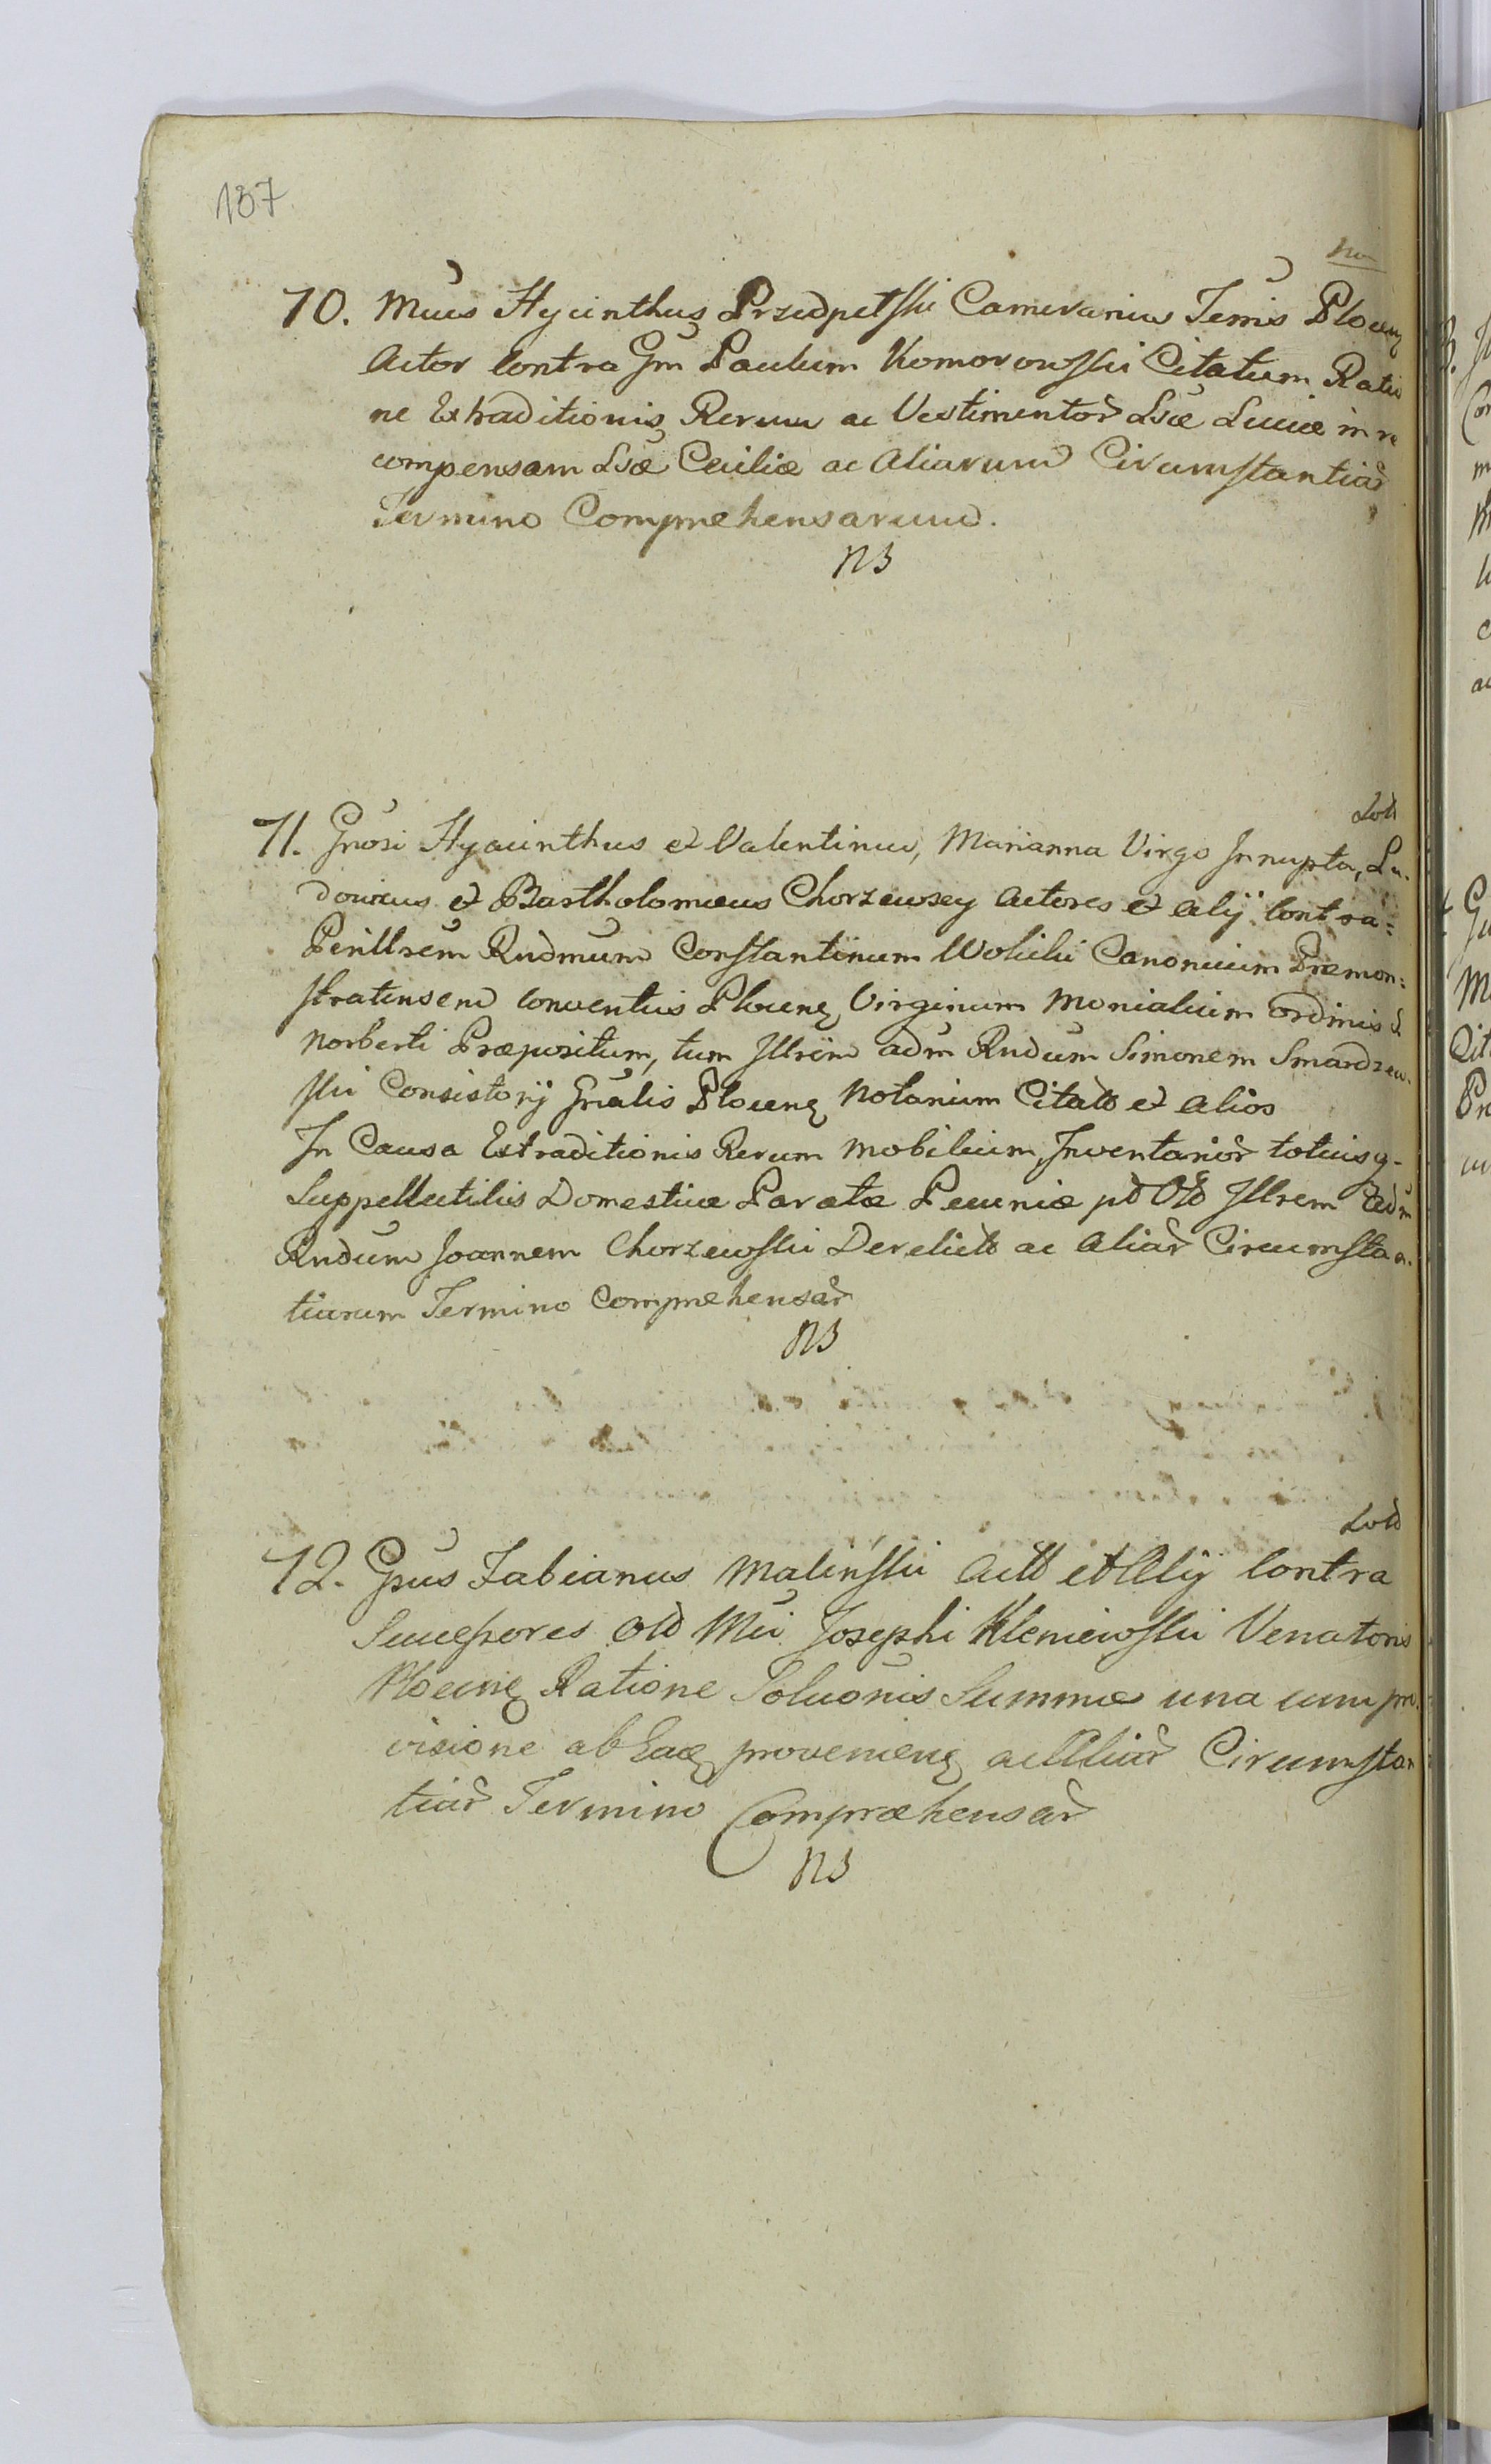 187
70. Mcus Hyacinthus Przedpełski Camerarius Terris Plocen
Actor contra Gm Paulum Komorowski Citatum Ratio
ne Extraditionis Rerum ac Vestimentor Lsæ Luciæ in re
compensam Lsæ Ceciliæ ac Aliarum Circumstantiar
Termino Comprehensarum.
NB
71. Gnosi Hyacinthus et Valentinus, Marianna Virgo Innupta, Lu-
dovicus et Bartholomæus Chorzewscy Actores et Alij contra
Perillrem Rndmum Constantinum Wolicki Canonicum Præmon:
stratensem Conventus Plocens Virginum Monialium ordinis S.
Norberti Præpositum, tum Illrem adm Rndum Simonem Smardzew-
ski Consistorij Gnalis Plocens Notarium Citato et Alios
In Causa Extraditionis Rerum Mobilium, Inventarior totiusq-
Suppellectilis Domesticæ Paratæ Pecuniæ pd Old Illrem Adm
Rndum Joannem Chorzewski Derelicto ac Aliar Circumstan-
tiarum Termino Comprehensar
NB
72. Gsus Fabianus Malinski Actt et Alij Contra
Successores Old Mci Josephi Kleniewski Venatoris
Plocens Ratione Soluonis Summæ una cum pro-
visione ab Eae proveniens ac Aliar Circumstan
tiar Termino Compræhensar
NB